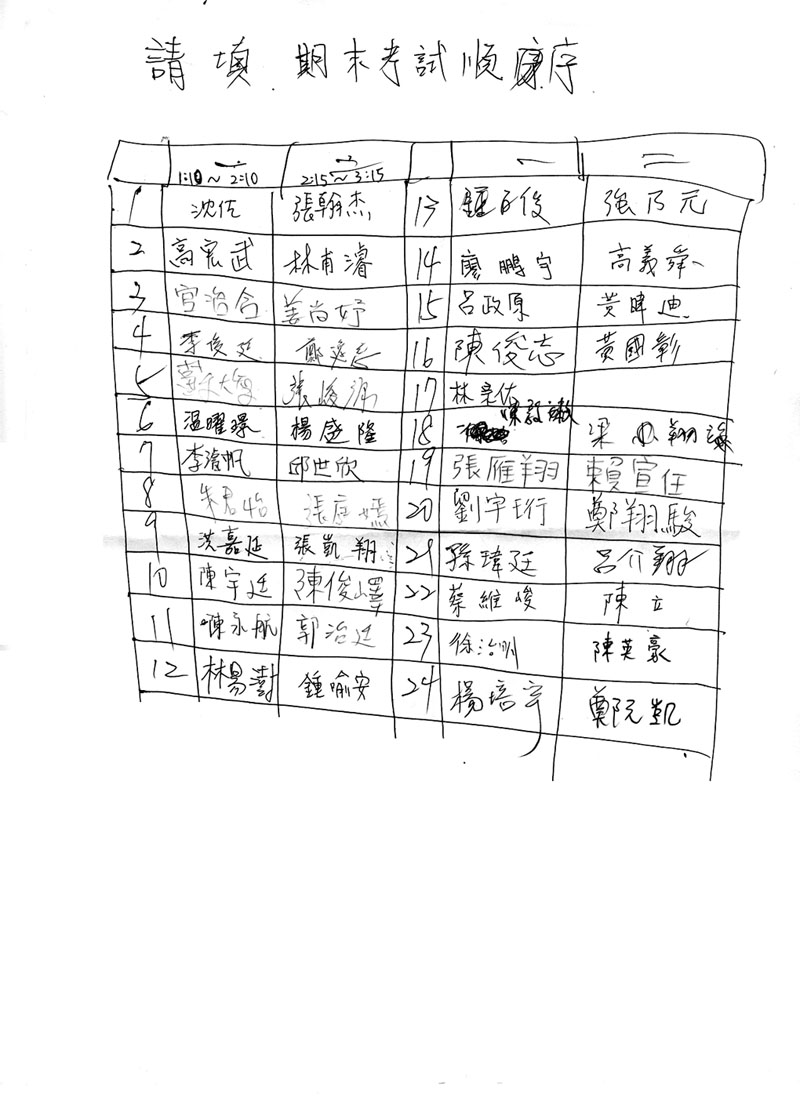 請填 期末考試順序
一 二 一 二
1:10～2:10 2:15～3:15
1 沈佐 張翰杰 13 鍾 俊 強乃元
2 高宏武 林甫濬 14 廖鵬宇 高義舜
3 宮治合 姜尚妤 15 呂政原 黃暐迪
4 李俊 鄭 16 陳俊志 黃國彰
5 張 17 林 佑
6 溫曜璟 楊盛隆 18 梁 翔
7 李濬帆 邱世欣 19 張雁翔 賴宣任
8 朱君怡 張庭嫣 20 劉宇珩 鄭翔駿
9 洪嘉延 張凱翔 21 孫瑋廷 呂介翔
10 陳宇廷 陳俊嶧 22 蔡維峻 陳立
11 陳永航 郭治廷 23 徐治明 陳英豪
12 林易澍 鍾喻安 24 楊培宇 鄭阮凱